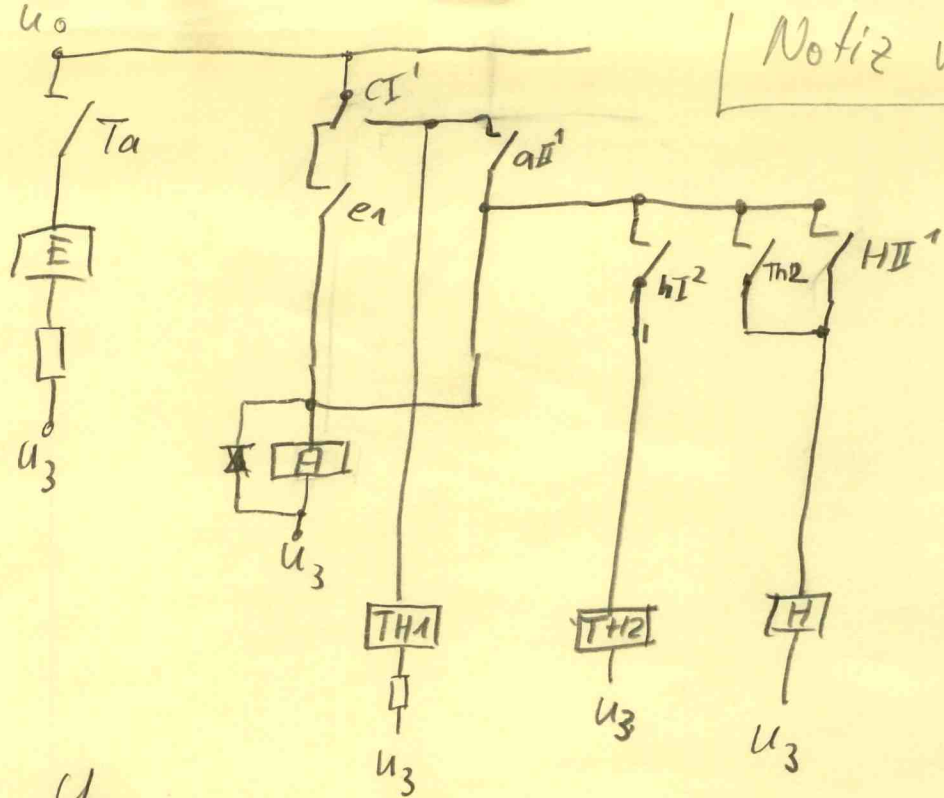 U0
Notiz
CI¹
Ta
aII¹
e1
E
hI²
Th2
HII¹
U3
A
U3
TH1
TH2
H
U3
U3
U3